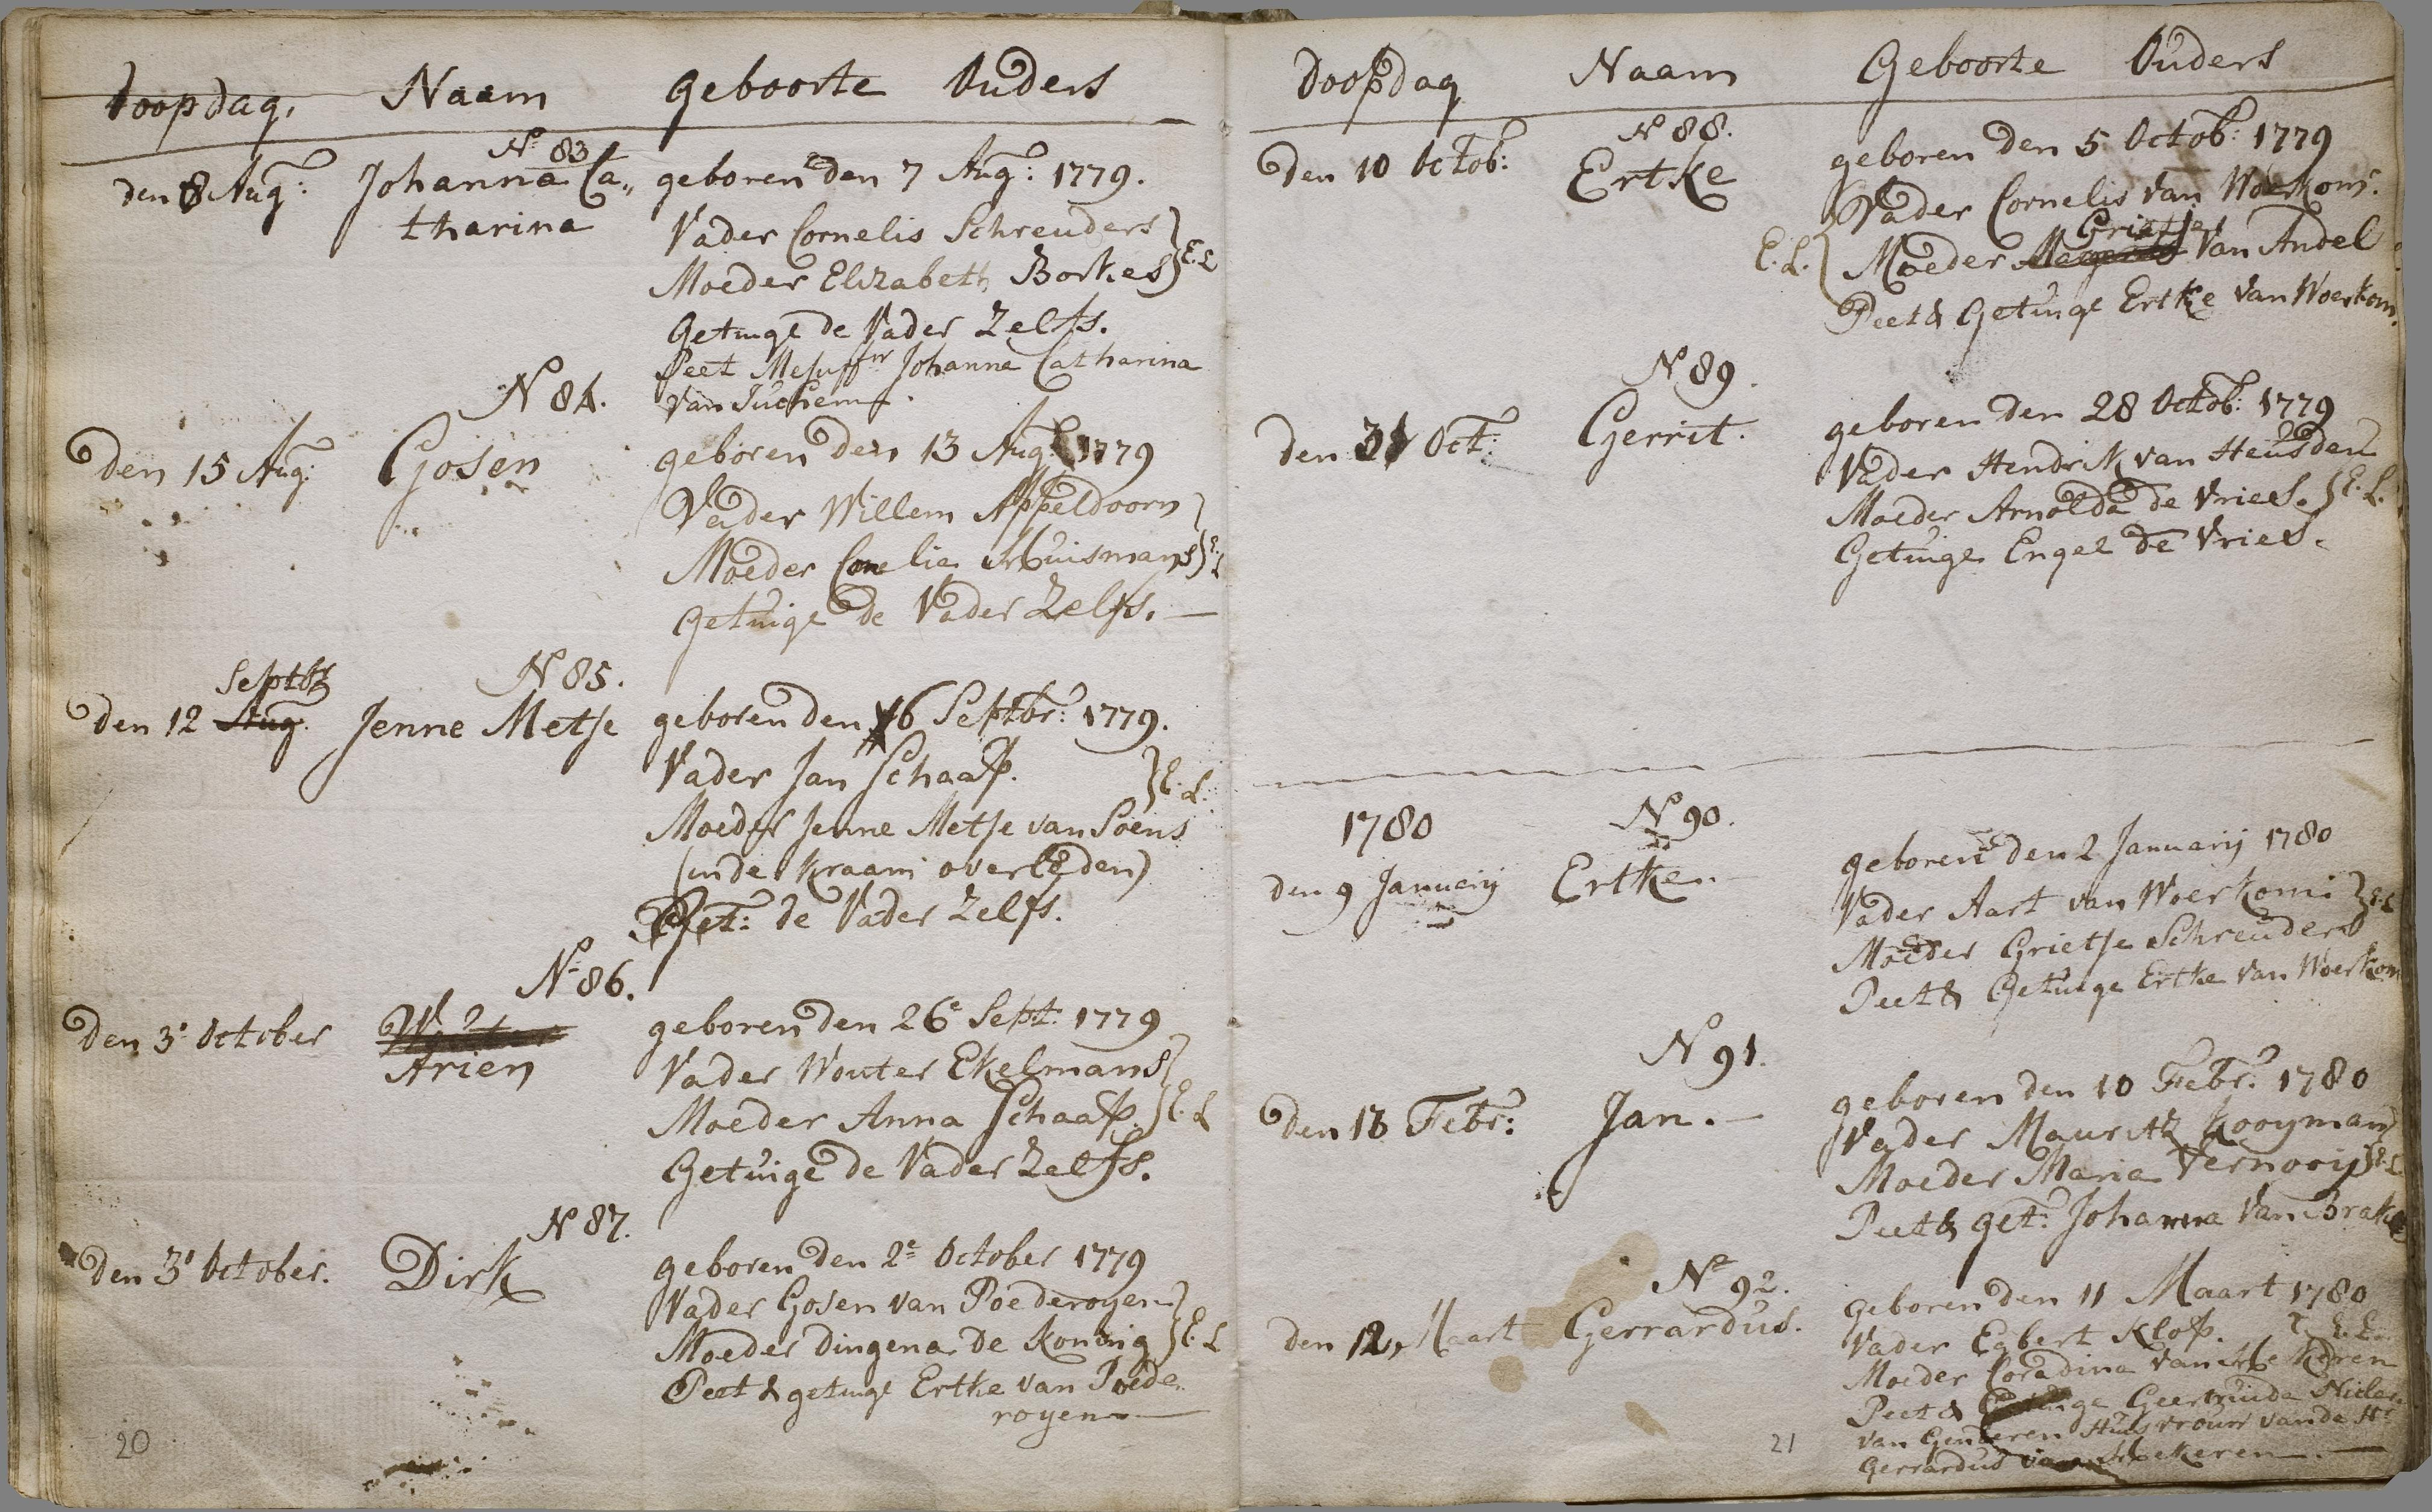 doopdag, Naam geboorte Ouders
N: 83
den 8 Aug: Johanna Ca„ geboren den 7 Aug: 1779.
tharina Vader Cornelis Schreuders
Moeder Elizabeth Borkes } E. L
Getuige de Vader Zelfs.
Peet Mejuffr Johanna Catharina
van
N 84.
den 15 Aug: Gosen geboren den 13 Aug: 1779
Vader Willem Appeldoorn
Moeder Cornelia Huismans } E. L
Getuige de Vader Zelfs. —
Septbr N 85.
den 12 Aug. Jenne Metje geboren den 6 Septbr: 1779.
Vader Jan Schaap.
} E. L.
Moeder Jenne Metje van Soens
(in de Kraam overleden)
Get: de Vader Zelfs.
N 86.
den 3e October Wouter geboren den 26e Sept: 1779
Arien Vader Wouter Ekelmans
Moeder Anna Schaap. } E. L
Getuige de Vader Zelfs.
N 87.
den 3e October. Dirk geboren den 2e October 1779
Vader Gosen van Poederoyen
Moeder dingena de Koning } E. L
Peet & getuige Ertke van Poede„
royen —
20
Doopdag Naam Geboorte Ouders
N 88.
den 10 Octob: Ertke geboren den 5 Octob: 1779
Vader Cornelis van Woerkom.
Grietje
E. L. { Moeder van Andel
Peet & Getuige Ertke van Woerkom.
N 89.
den 31 Oct: Gerrit. geboren den 28 Octob: 1779
Vader Hendrik van Heusden
Moeder Arnolda de Vries. } E. L.
Getuige Engel de Vries.
1780 N 90.
den 9 January Ertke. — geboren den 2 January 1780
Vader Aart van Woerkom } E. L
Moeder Grietje Schreuders
Peet & Getuige Ertke van Woerkom
N 91.
den 13 Febr: Jan. — geboren den 10 Febr: 1780
Vader Mauritz Kooyman
Moeder Maria Vernooij } E. L
Peet & get: Johanna van Brakel
No 92.
den 12, Maart Gerrardus. geboren den 11 Maart 1780
Vader Egbert Klop. } E. L.
Moeder Coradina van Hekeren
Peet & Getuige Geertruida
van Genderen Huisvrouw van de Hr
Gerrardus van Hekeren —
21